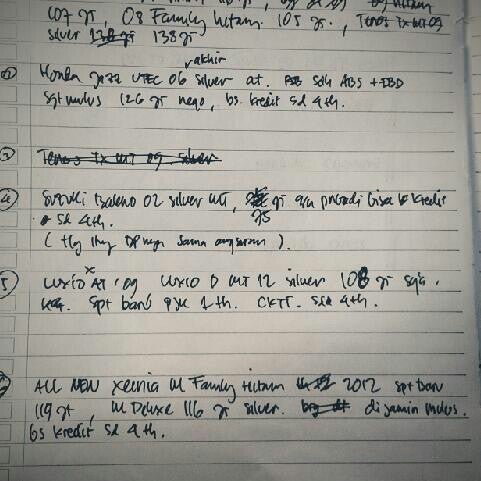 107 jt, 08 Family hitam. 105 jt., Teros TX MT 09
silver 138 jt 138 jt
akhir
2) Honda jazz VTEC 06 silver at. sdh ABS + EBD
sgt mulus 126 jt nego, bs kredit sd 4th.
3) Teros TX MT 09 silver
4) Suzuki Baleno 02 silver MT, jt a/n pribadi bisa kredit
75
sd 4th.
( Tlg DP nya sama angsuran ).
5) Luxio X AT '09 Luxio D MT 12 silver 108 jt
Spt baru 1th. sd 4th.
ALL NEW Xenia M Family Hitam 2012 spt baru
119 jt, M Deluxe 116 jt silver. dijamin mulus.
bs kredit sd 4th.